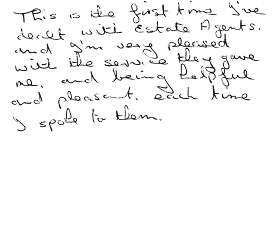 This is the first time I've
dealt with Estate Agents.
and I'm very pleased
with the service they gave
me, and being helpful
and pleasant. each time
I spoke to them.